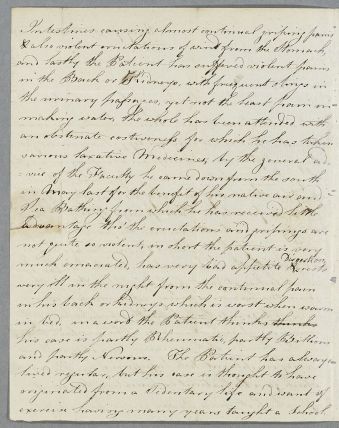 Intestines causing almost continual griping pains
& also violent eructations of wind from the Stomach
and lastly the Patient has suffered violent pain
in the Back or Kidneys, with frequent stops in
the urinary passages, yet not the least pain in
making water, the whole has been attended with
an obstinate costiveness for which he has taken
various laxative Medicines, by the general ad
vice of the Faculty he came down from the south
in May last for the benefit of his native air and
Sea Bathing from which he has received little
advantage tho' the eructations and gripings are
not quite so violent, in short the patient is very
much emaciated, has very bad appetite Digestion & rests
very ill in the night from the continual pain
in his back or kidneys which is worst when warm
in bed, in a word the Patient thinks thinks
his case is partly Rheumatic, partly Bilious
and partly Nervous. The Patient has always
lived regular, but his case is thought to have
originated from a Sedentary life and want of
exercise having many years taught a School